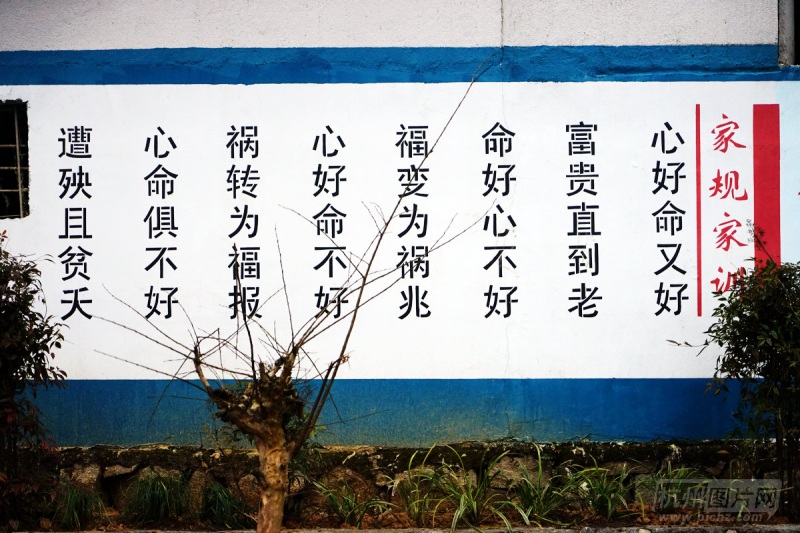 家规家训
心好命又好
富贵直到老
命好心不好
福变为祸兆
心好命不好
祸转为福报
心命俱不好
遭殃且贫夭
杭州图片网
www.pichz.com